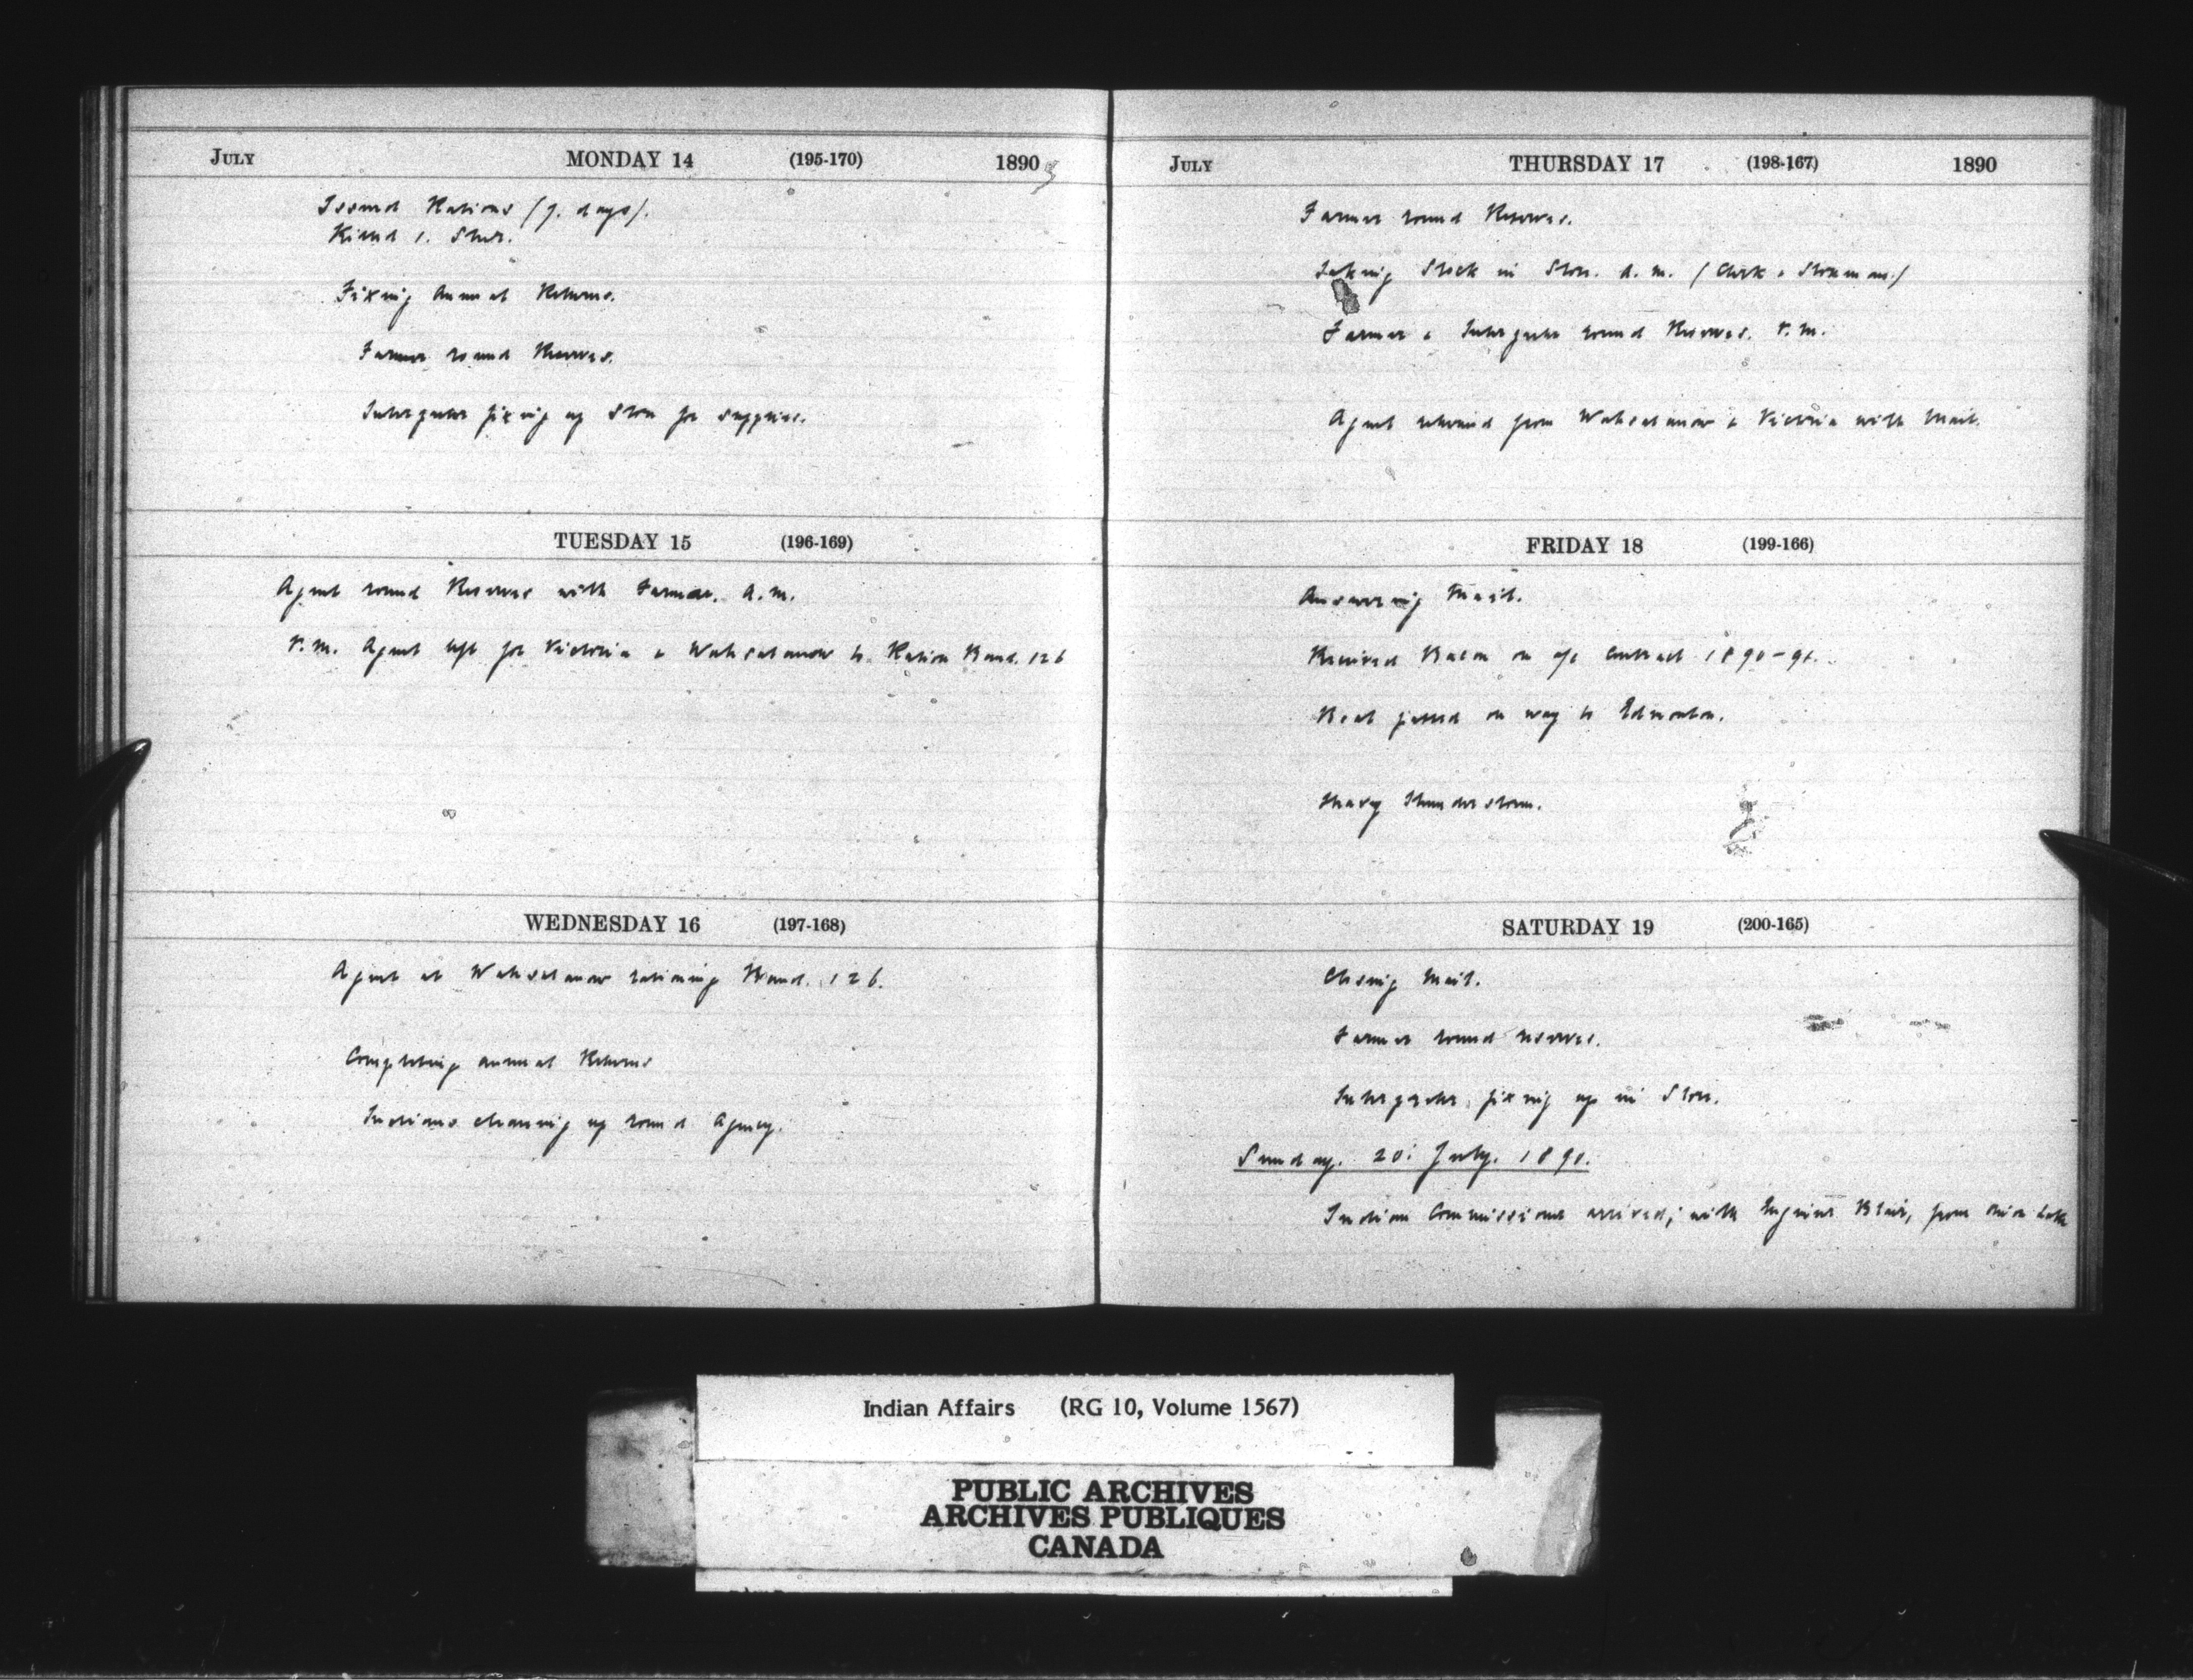 JULY MONDAY 14 (195-170) 1890
Issued Rations (7. days).
Killed 1. Steer.
Fixing Annual Returns.
Farmer round Reserves.
Interpreter fixing up Store for supplies.
TUESDAY 15 (196-169)
Agent round Reserves with Farmer. A.M.
P.M. Agent left for Victoria & Wahsatanow to Ration Band. 126
WEDNESDAY 16 (197-168)
Agent at Wahsatanow rationing Band. 126.
Completing annual Returns
Indians cleaning up round Agency.
JULY THURSDAY 17 (198-167) 1890
Farmer round Reserves.
Taking Stock in Store. A.M. (Clerk & Storeman)
Farmer & Interpreter round Reserves. P.M.
Agent returned from Wahsatanow & Victoria with Mail.
FRIDAY 18 (199-166)
Answering Mail.
Received Bacon on a/c Contract 1890-91.
Boat passed on way to Edmonton.
Heavy Thunderstorm.
SATURDAY 19 (200-165)
Closing Mail.
Farmer round reserves.
Interpreter fixing up in Store.
Sunday. 20: July. 1890.
Indian Commissioner arrived; with Blair, from Onion Lake
Indian Affairs (RG 10, Volume 1567)
PUBLIC ARCHIVES
ARCHIVES PUBLIQUES
CANADA